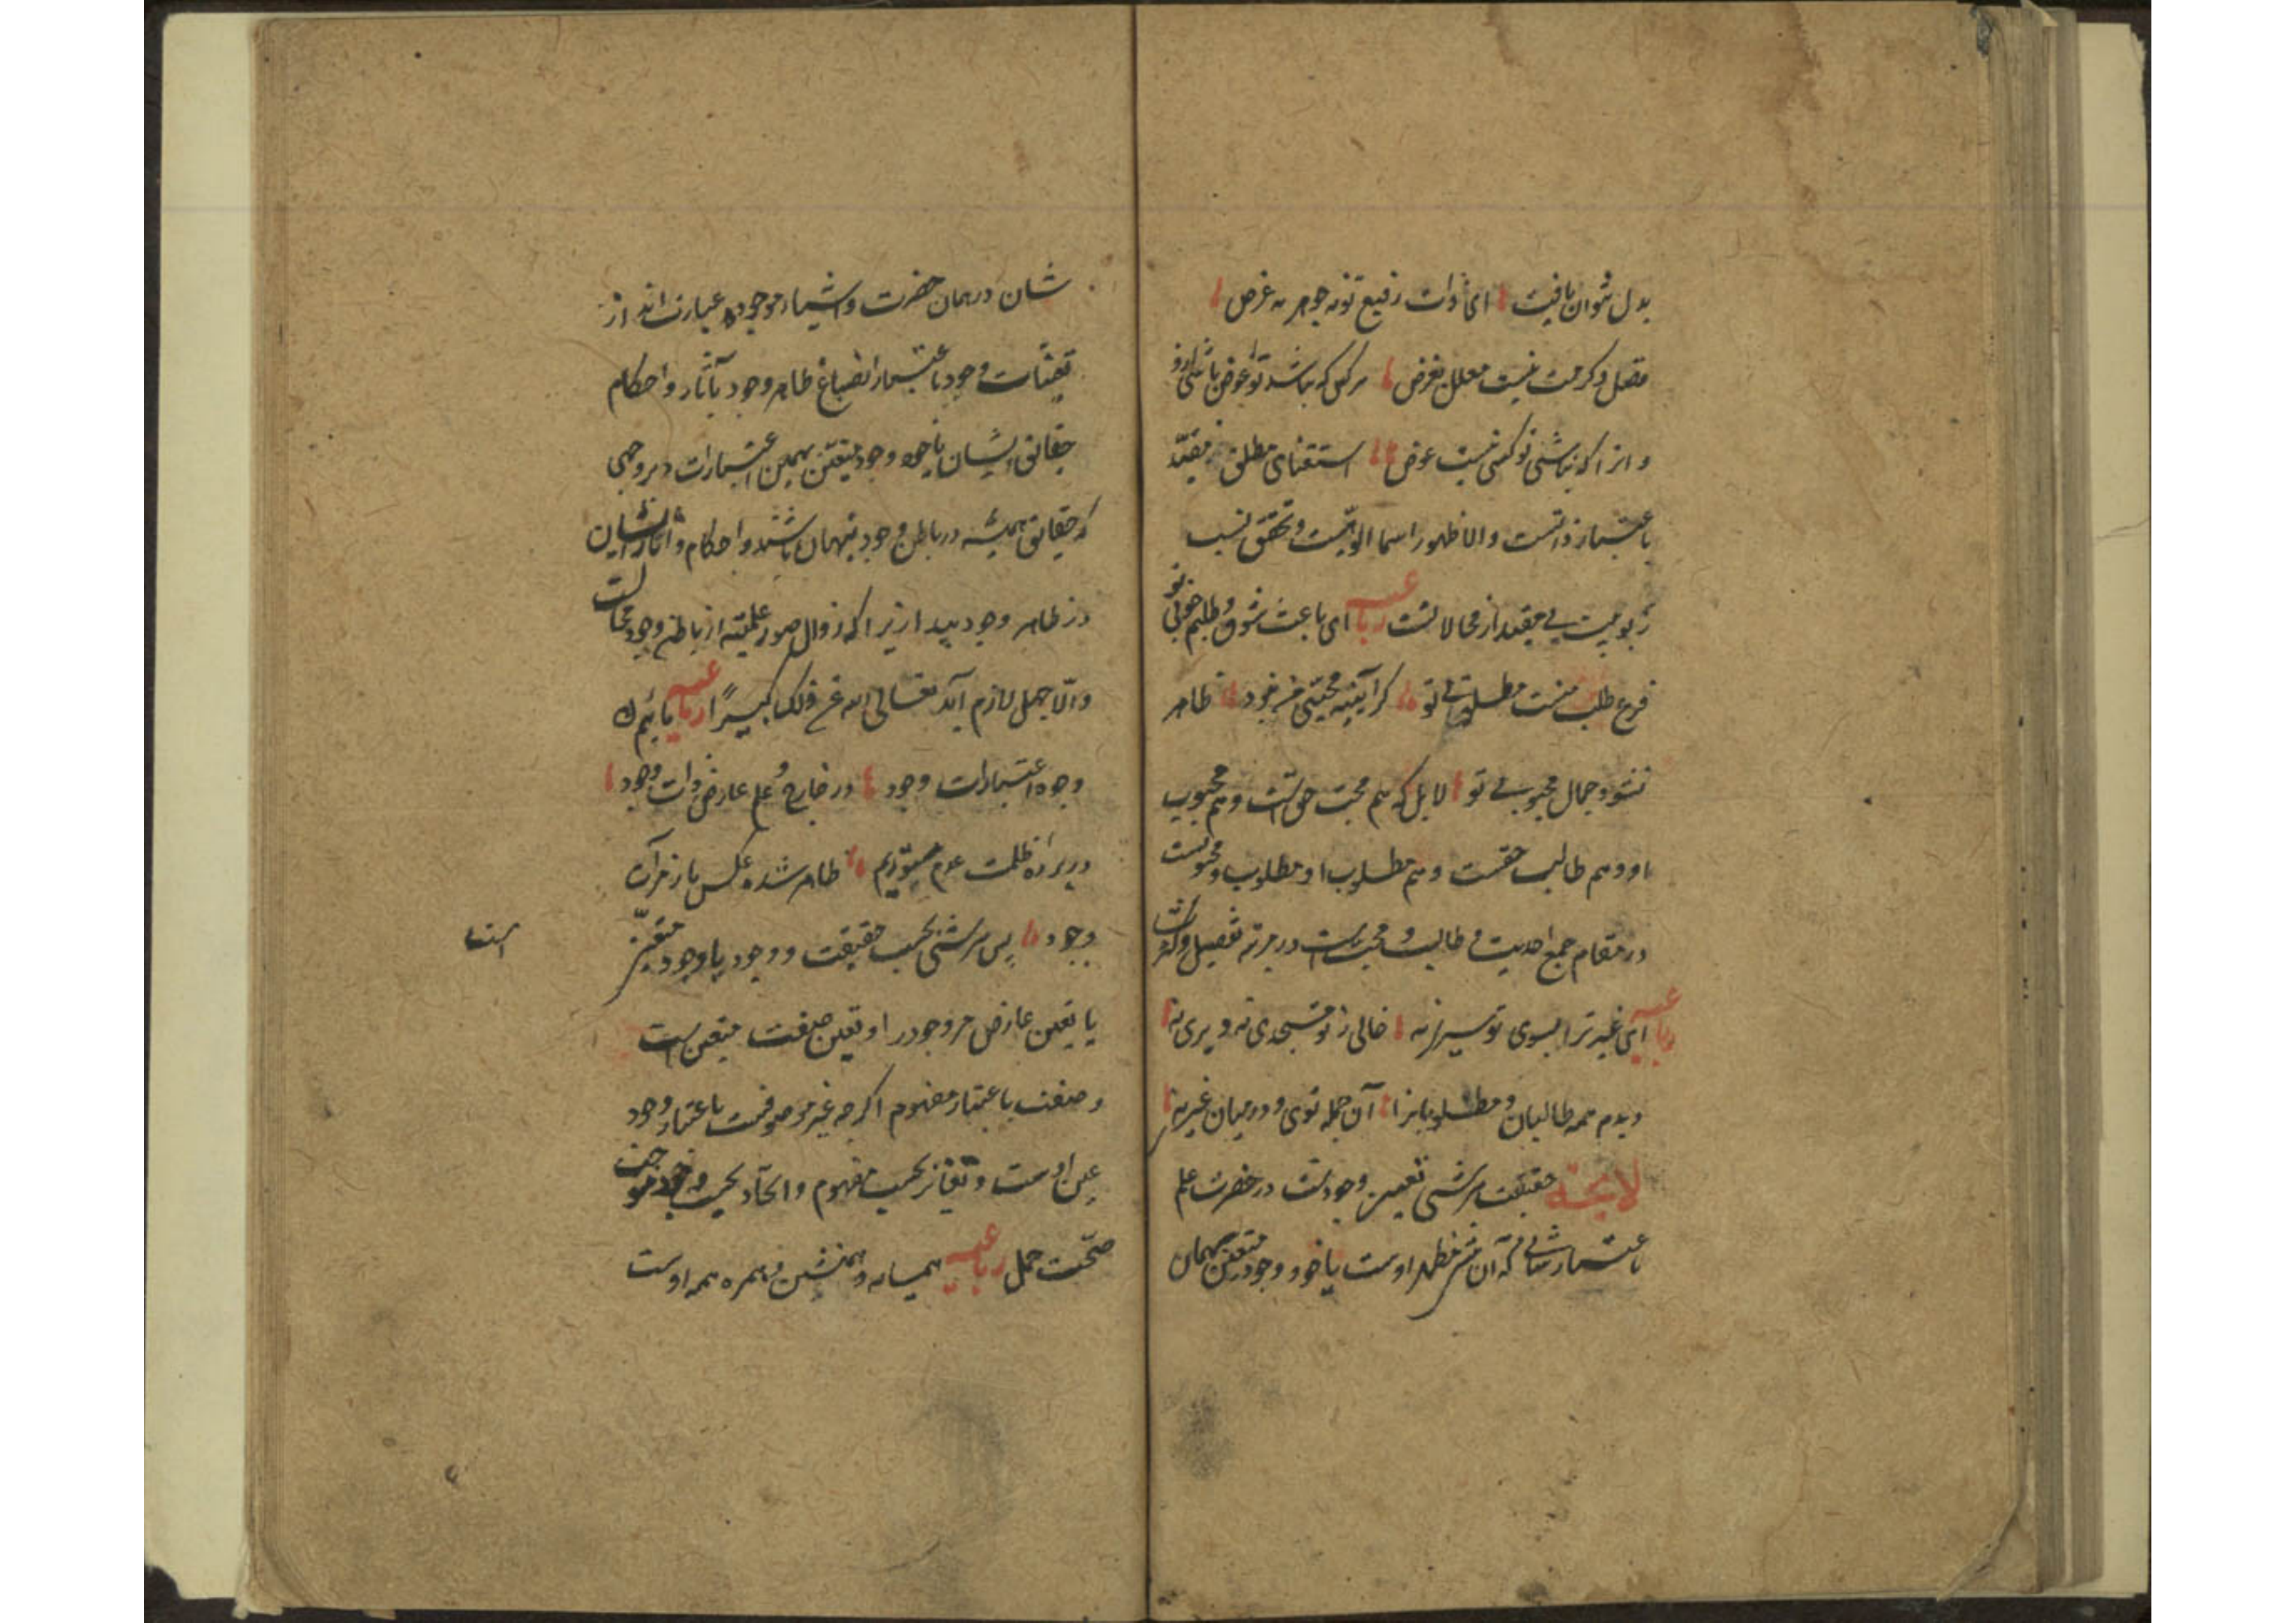 بدل نتوان یافت ای ذات رفیع تو نه جوهر نه عرض
فضل و کرمت نیست معلل بغرض هر کس که نباشد تو عوض باشی ازو
و انرا که نباشی تو کسی نیست عوض استغنای مطلق از مقید
باعتبار ذاتست والا ظهور اسما الوهیت و تحقق نسب
ربوبیت بی مقید از محالاتست رباعیه ای باعث شوق و طلبم خوبی تو
فرع طلب منست مطلوبی تو گر آینه محبی من نبود ظاهر
نشود جمال محبوبی تو لا بل که هم محب حق است و هم محبوب
او و هم طالب حقست و هم مطلوب او مطلوب و محبوبست
در مقام جمع احدیت و طالب و محبست در مرتبه تفصیل و کثرت
رباعیه ای غیر ترا بسوی تو سیری نه خالی ز تو مسجدی نه و دیری نه
دیدم همه طالبان و مطلوبانرا آن جمله توی و در میان غیری نه
لایحه حقیقت هر شی تعین وجودست در حضرت علم
باعتبار شانی که آن شی مظهر اوست یا خود وجود متعین بهمان
شان در همان حضرت و اشیاء موجوده عبارت اند از
تعینات وجود باعتبار انصباغ ظاهر وجود بآثار و احکام
حقایق ایشان یا خود وجود متعین بهمین اعتبارات بر وجهی
که حقایق همیشه در باطن وجود پنهان باشند و احکام و آثار ایشان
در ظاهر وجود پیدا زیرا که زوال صور علمیه از باطن وجود محالست
والا جهل لازم آید تعالی الله عن ذلک علوا کبیرًا رباعیه مائیم که
وجوه اعتبارات وجود در خارج و علم عارض ذات وجود
در پرده ظلمت عدم مستوریم ظاهر شده عکس ما ز مرآت
وجود پس هر شی بحسب حقیقت و وجود یا وجود متعین
است
یا تعین عارض مر وجود را و تعین صفت متعین است
و صفت باعتبار مفهوم اکرچه غیر موصوفست باعتبار وجود
عین اوست و تغایر بحسب مفهوم و اتحاد بحسب وجود موجب
صحت حمل رباعیه همسایه و همنشین و همره همه اوست